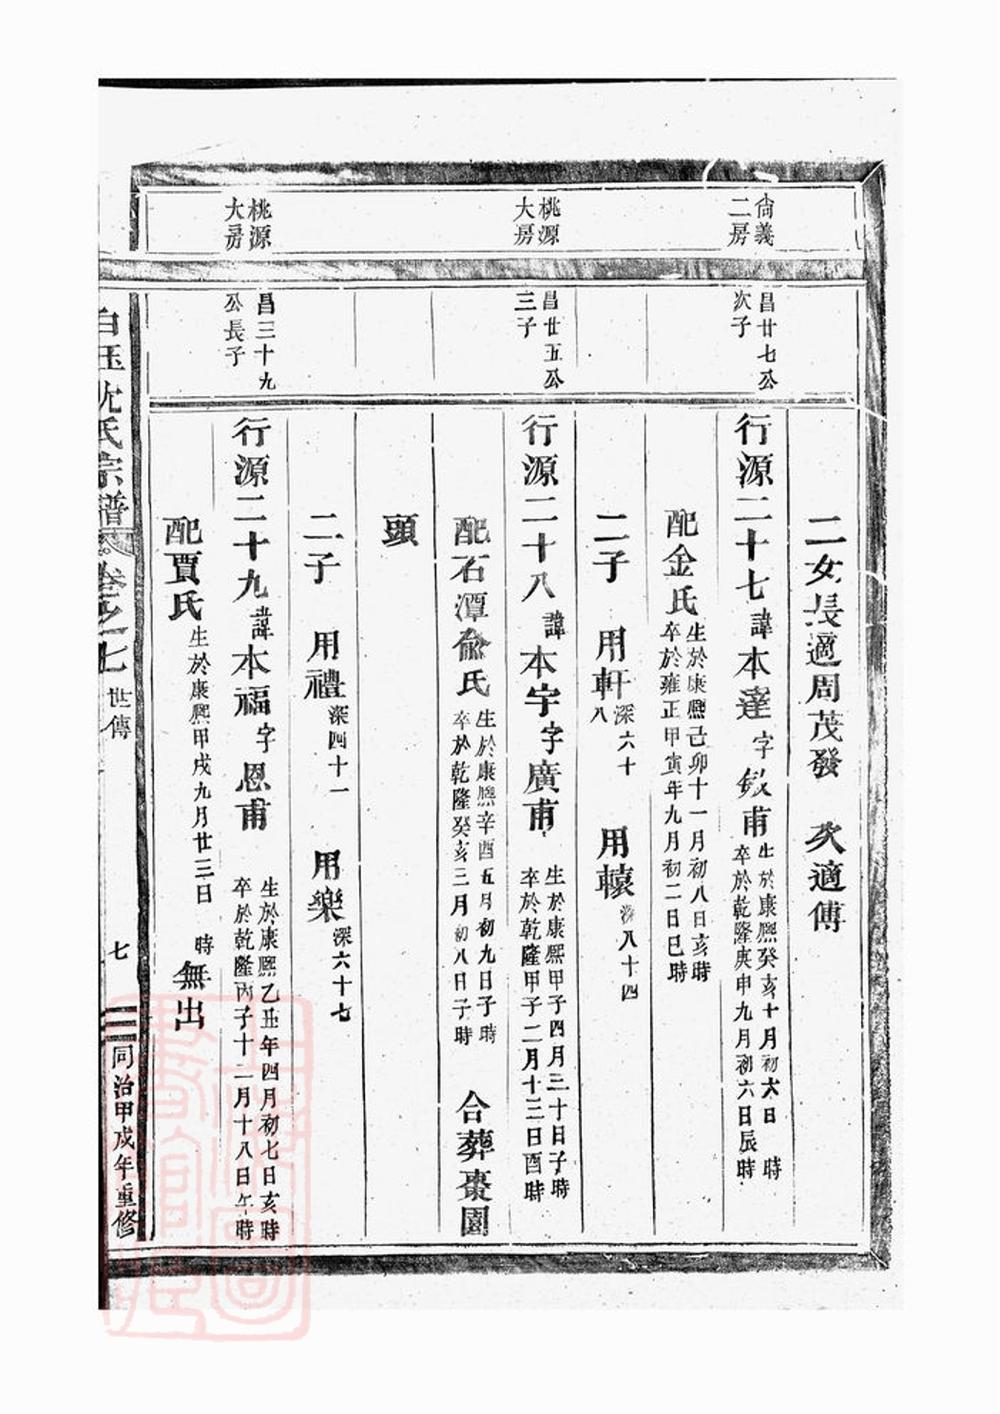 二女長適周茂發　次適傅
尙義
二房
昌廿七公
次子
行源二十七諱本達字敘甫
生於康熙癸亥十月初六日　時
卒於乾隆庚申九月初六日辰時
配金氏
生於康熙己卯十一月初八日亥時
卒於雍正甲寅年九月初二日巳時
二子　用軒深六十八　用轅深八十四
桃源
大房
昌廿五公
三子
行源二十八諱本宇字廣甫
生於康熙甲子四月三十日子時
卒於乾隆甲子二月十三日酉時
配石潭俞氏
生於康熙辛酉五月初九日子時
卒於乾隆癸亥三月初八日子時
合葬棗園
頭
二子　用禮深四十一　用樂深六十七
桃源
大房
昌三十九
公長子
行源二十九諱本福字恩甫
生於康熙乙丑年四月初七日亥時
卒於乾隆丙子十二月十八日午時
配賈氏
生於康熙甲戌九月廿三日　時
無出
白玉沈氏宗譜　卷之十七　世傳　七　同治甲戌年重修